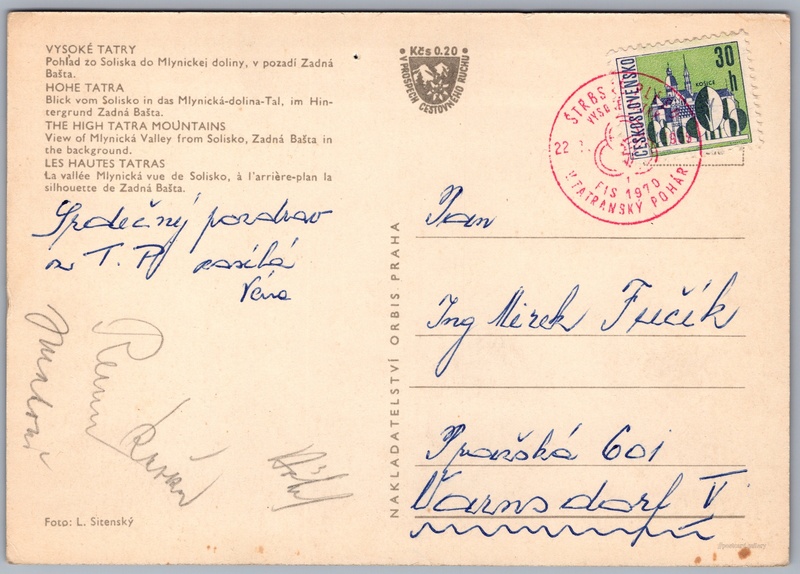 VYSOKÉ TATRY
Pohľad zo Soliska do Mlynickej doliny, v pozadí Zadná
Bašta.
HOHE TATRA
Blick vom Solisko in das Mlynická-dolina-Tal, im Hin-
tergrund Zadná Bašta.
THE HIGH TATRA MOUNTAINS
View of Mlynická Valley from Solisko, Zadná Bašta in
the background.
LES HAUTES TATRAS
La vallée Mlynická vue de Solisko, á l'arrière-plan la
silhouette de Zadná Bašta.
Srdečný pozdrav
z T. P. zasílá
Věra
Foto: L. Sitenský
Kčs 0.20
V PROSPĚCH CESTOVNÉHO RUCHU
NAKLADATELSTVÍ ORBIS PRAHA
30
h
KOŠICE
ČESKOSLOVENSKO
ŠTRBS
22
FIS 1970
V TATRANSKÝ POHÁR
Pan
Ing Mirek Fučík
Pražská 601
Varnsdorf V